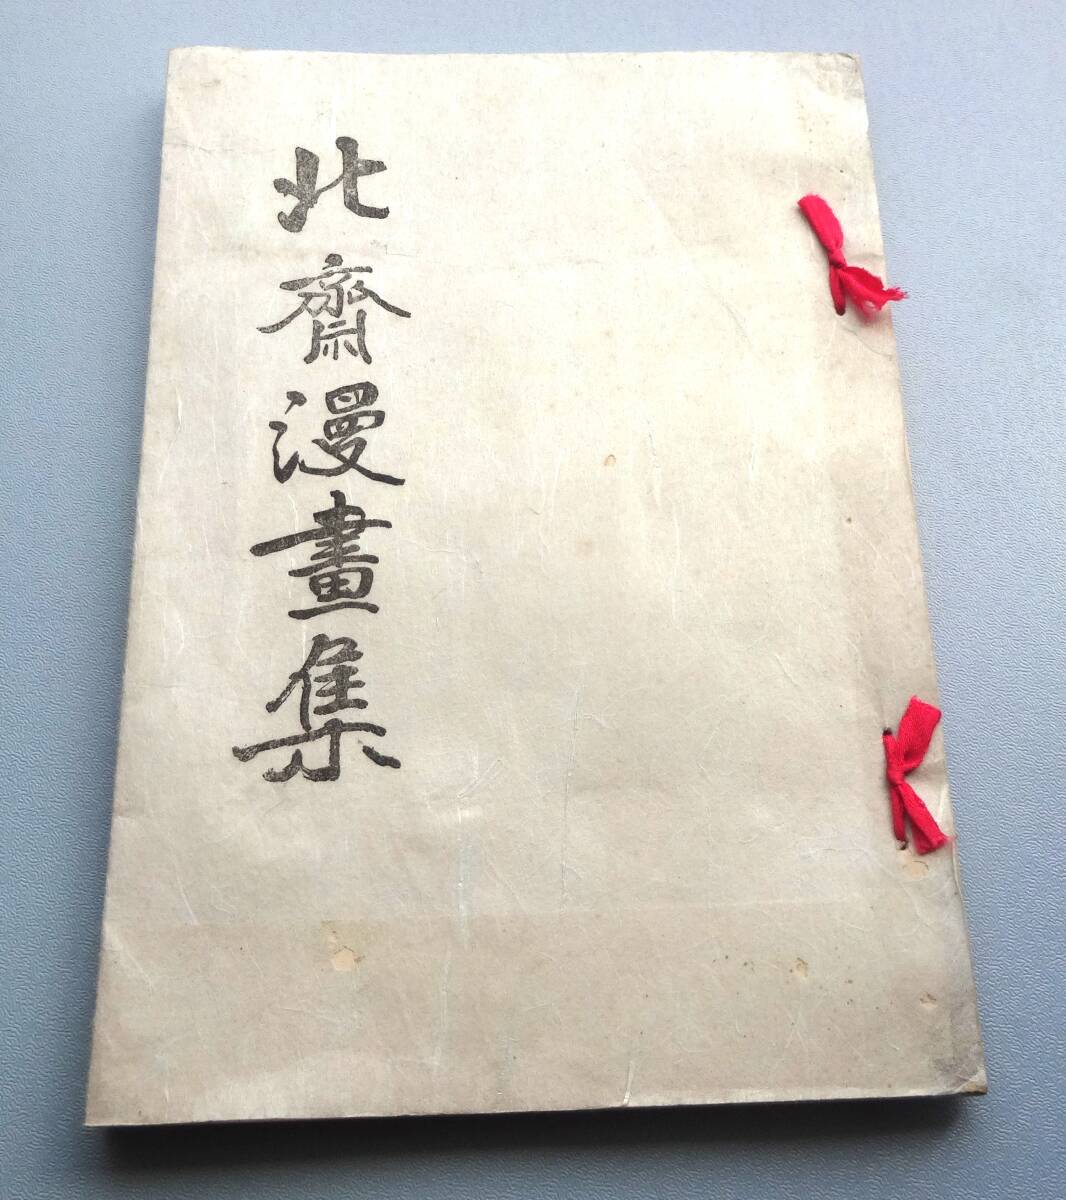 北齋漫畫集